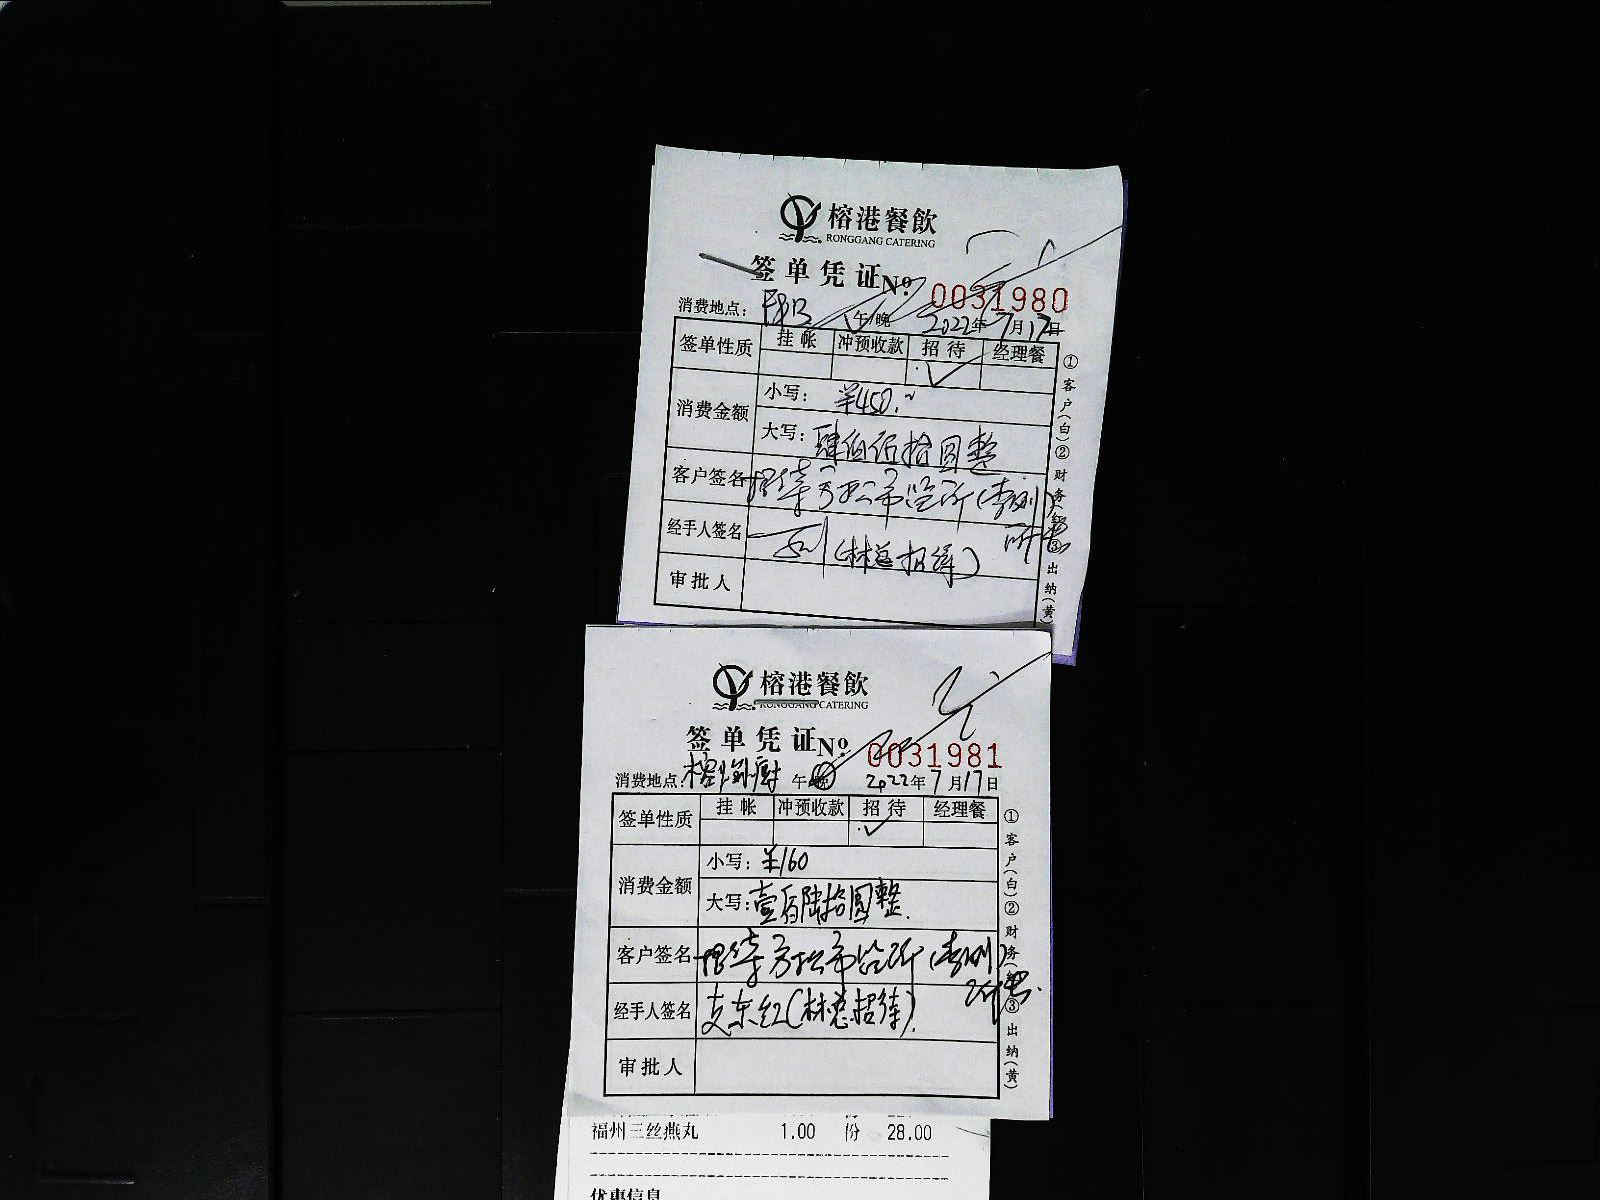 榕港餐飲
RONGGANG CATERING
签单凭证 No. 0031980
消费地点： 午/晚 2022年7月17日
签单性质 挂帐 冲预收款 招待 经理餐
消费金额 小写：¥450.
大写：肆佰伍拾圆整
客户签名 招待方松市监所（李刚
所长
经手人签名 （林总招待）
审批人
①客户（白）②财务（红）③出纳（黄）
榕港餐飲
RONGGANG CATERING
签单凭证 No. 0031981
消费地点： 午 晚 2022年7月17日
签单性质 挂帐 冲预收款 招待 经理餐
消费金额 小写：¥160
大写：壹佰陆拾圆整
客户签名 招待方松市监所（李刚）
所长
经手人签名 支东红（林总招待）
审批人
①客户（白）②财务（红）③出纳（黄）
福州三丝燕丸 1.00 份 28.00
优惠信息